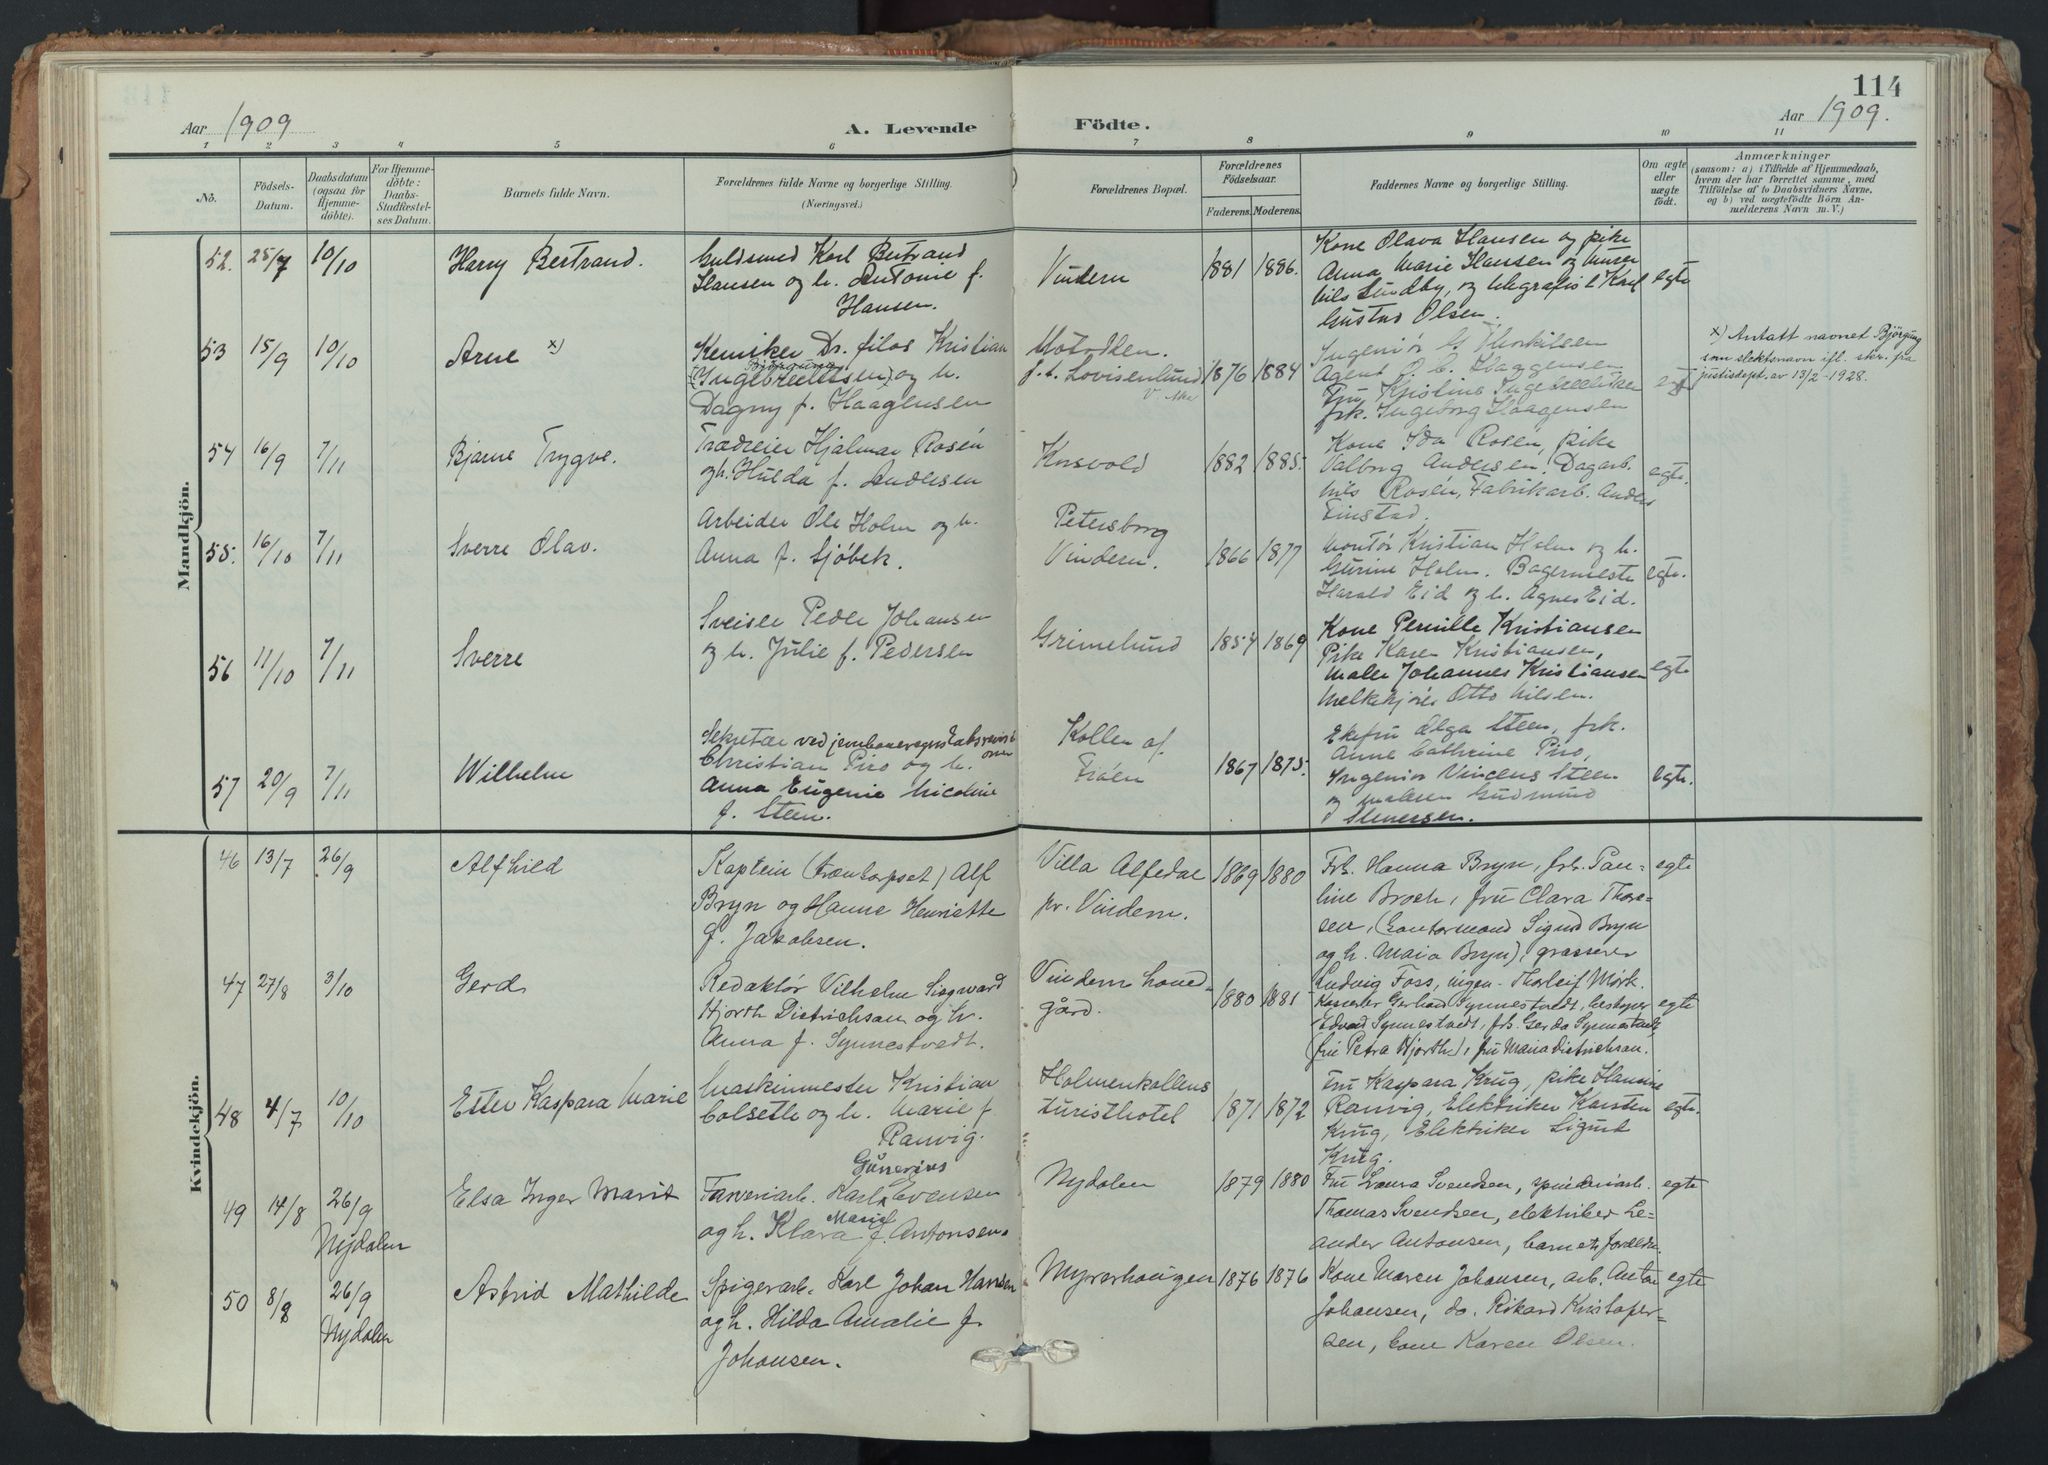 114
Aar 1909
A. Levende
Födte.
Aar 1909.
1 2 3 4 5 6 7 8 9 10 11
No.
Födsels-
Datum.
Daabsdatum
(ogsaa for
Hjemme-
döbte).
For Hjemme-
döbte:
Daabs-
Stadfæstel-
ses Datum.
Barnets fulde Navn.
Forældrenes fulde Navne og borgerlige Stilling.
(Næringsvei.)
Forældrenes Bopæl.
Forældrenes
Födselsaar.
Faderens. Moderens.
Faddernes Navne og borgerlige Stilling.
Om ægte
eller
uægte
födt.
Anmærkninger
(saasom: a) i Tilfælde af Hjemmedaab,
hvem der har forrettet samme, med
Tilföielse af to Daabsvidners Navne,
og b) ved uægtefödte Börn An-
melderens Navn m. V.)
Mandkjön.
52. 25/7 10/10 Harry Bertrand.
Guldsmed Karl Bertrand
Hansen og h. Antonie f.
Hansen.
Vindern 1881 1886.
Kone Olava Hansen og pike
Anna Marie Hansen og murer
Nils Lundby, og telegrafist Karl
Gustav Olsen.
egte
53 15/9 10/10 Arne x)
Kemiker Dr. filos Kristian
Björgung
(Ingebrechtsen) og h.
Dagny f. Haagensen
f. t. Lovisenlund
V. Aker
1876 1884
Ingeniör G. Thorkilsen
Agent O. C. Haagensen
Fru Kristine Ingebrechtsen
frk. Ingeborg Haagensen
egt
x) Antatt navnet Björgung
som slektsnavn ifl. skr. fra
justisdept. av 13/2-1928.
54 16/9 7/11 Bjarne Trygve.
Trædreier Hjalmar Rosén
og h. Hulda f. Andersen
Korsvold 1882 1885.
Kone Ida Rosén, pike
Valborg Andersen. Dagarb.
Nils Rosén, Fabrikarb. Anders
Finstad
egte.
55. 16/10 7/11 Sverre Olav.
Arbeider Ole Holm og h.
Anna f. Sjöbek.
Petersborg
Vindern.
1866 1877
Montör Kristian Holm og h.
Gurine Holm. Bagermester
Harald Eid og h. Agnes Eid.
egte.
56 11/10 7/11 Sverre
Sveiser Peder Johansen
og h. Julie f. Pedersen
Grimelund 1854 1869
Kone Pernille Kristiansen
Pike Karen Kristiansen,
Maler Johannes Kristiansen
Melkekjörer Otto Nilsen.
egte
57 20/9 7/11 Wilhelm
Sekretær ved jernbaneregnskabsrevisi
onen
Christian Piro og h.
Anna Eugenie Nicoline
f. Steen.
Kollen af
Fröen
1867 1875.
Ekefru Olga Steen, frk.
Anne Cathrine Piro,
Ingeniör Vincens Steen
og maleren Gudmund
Stenersen.
egte.
Kvindekjön.
46 13/7 26/9 Alfhild
Kaptein (træn korpset) Alf
Bryn og Hanne Henriette
f. Jakobsen.
Villa Alfedal
pr. Vindern.
1869 1880
Frk. Hanna Bryn, frk. Pau-
line Broch, fru Clara Thore-
sen, (Kontormand Sigurd Bryn
og h. Maia Bryn), grosserer
Ludvig Foss, ingen. Thorleif Mørk.
egte
47 27/8 3/10 Gerd
Redaktör Vilhelm Sieg­ward
Hjorth Dietrichson og h.
Anna f. Synnestvedt.
Vindern hoved-
gård.
1880 1881
Kasserer Gerhard Synnestvedt, bestyrer
Edvard Synnestvedt, frk. Gerda Synnestvedt
(fru Petra Hjorth), fru Maria Dietrichson.
egte
48 4/7 10/10 Ester Kaspara Marie
Maskinmester Kristian
Colseth og h. Marie f.
Ranvig.
Holmenkollens
turisthotel
1871 1872
Fru Kaspara Krug, pike Hansine
Ranvig, Elektriker Karsten
Krug, Elektriker Sigurd
Krug.
egte.
49 14/8 26/9
Nydalen
Elsa Inger Marit
Gunerius
Farveriarb. Karl Evensen
Marie
og h. Klara f. Antonsen.
Nydalen 1879 1880
Fru Laura Svendsen, spinderiarb.
Thomas Svendsen, elektriker Le-
ander Antonsen, barnets forældre.
egte
50 8/8 26/9
Nydalen
Astrid Mathilde
Spigerarb. Karl Johan Hansen
og h. Hilda Amalie f.
Johansen.
Myrerhaugen 1876 1876
Kone Maren Johansen, arb. Anton
Johansen, do. Rikard Kristofer-
sen, kone Karen Olsen.
egte